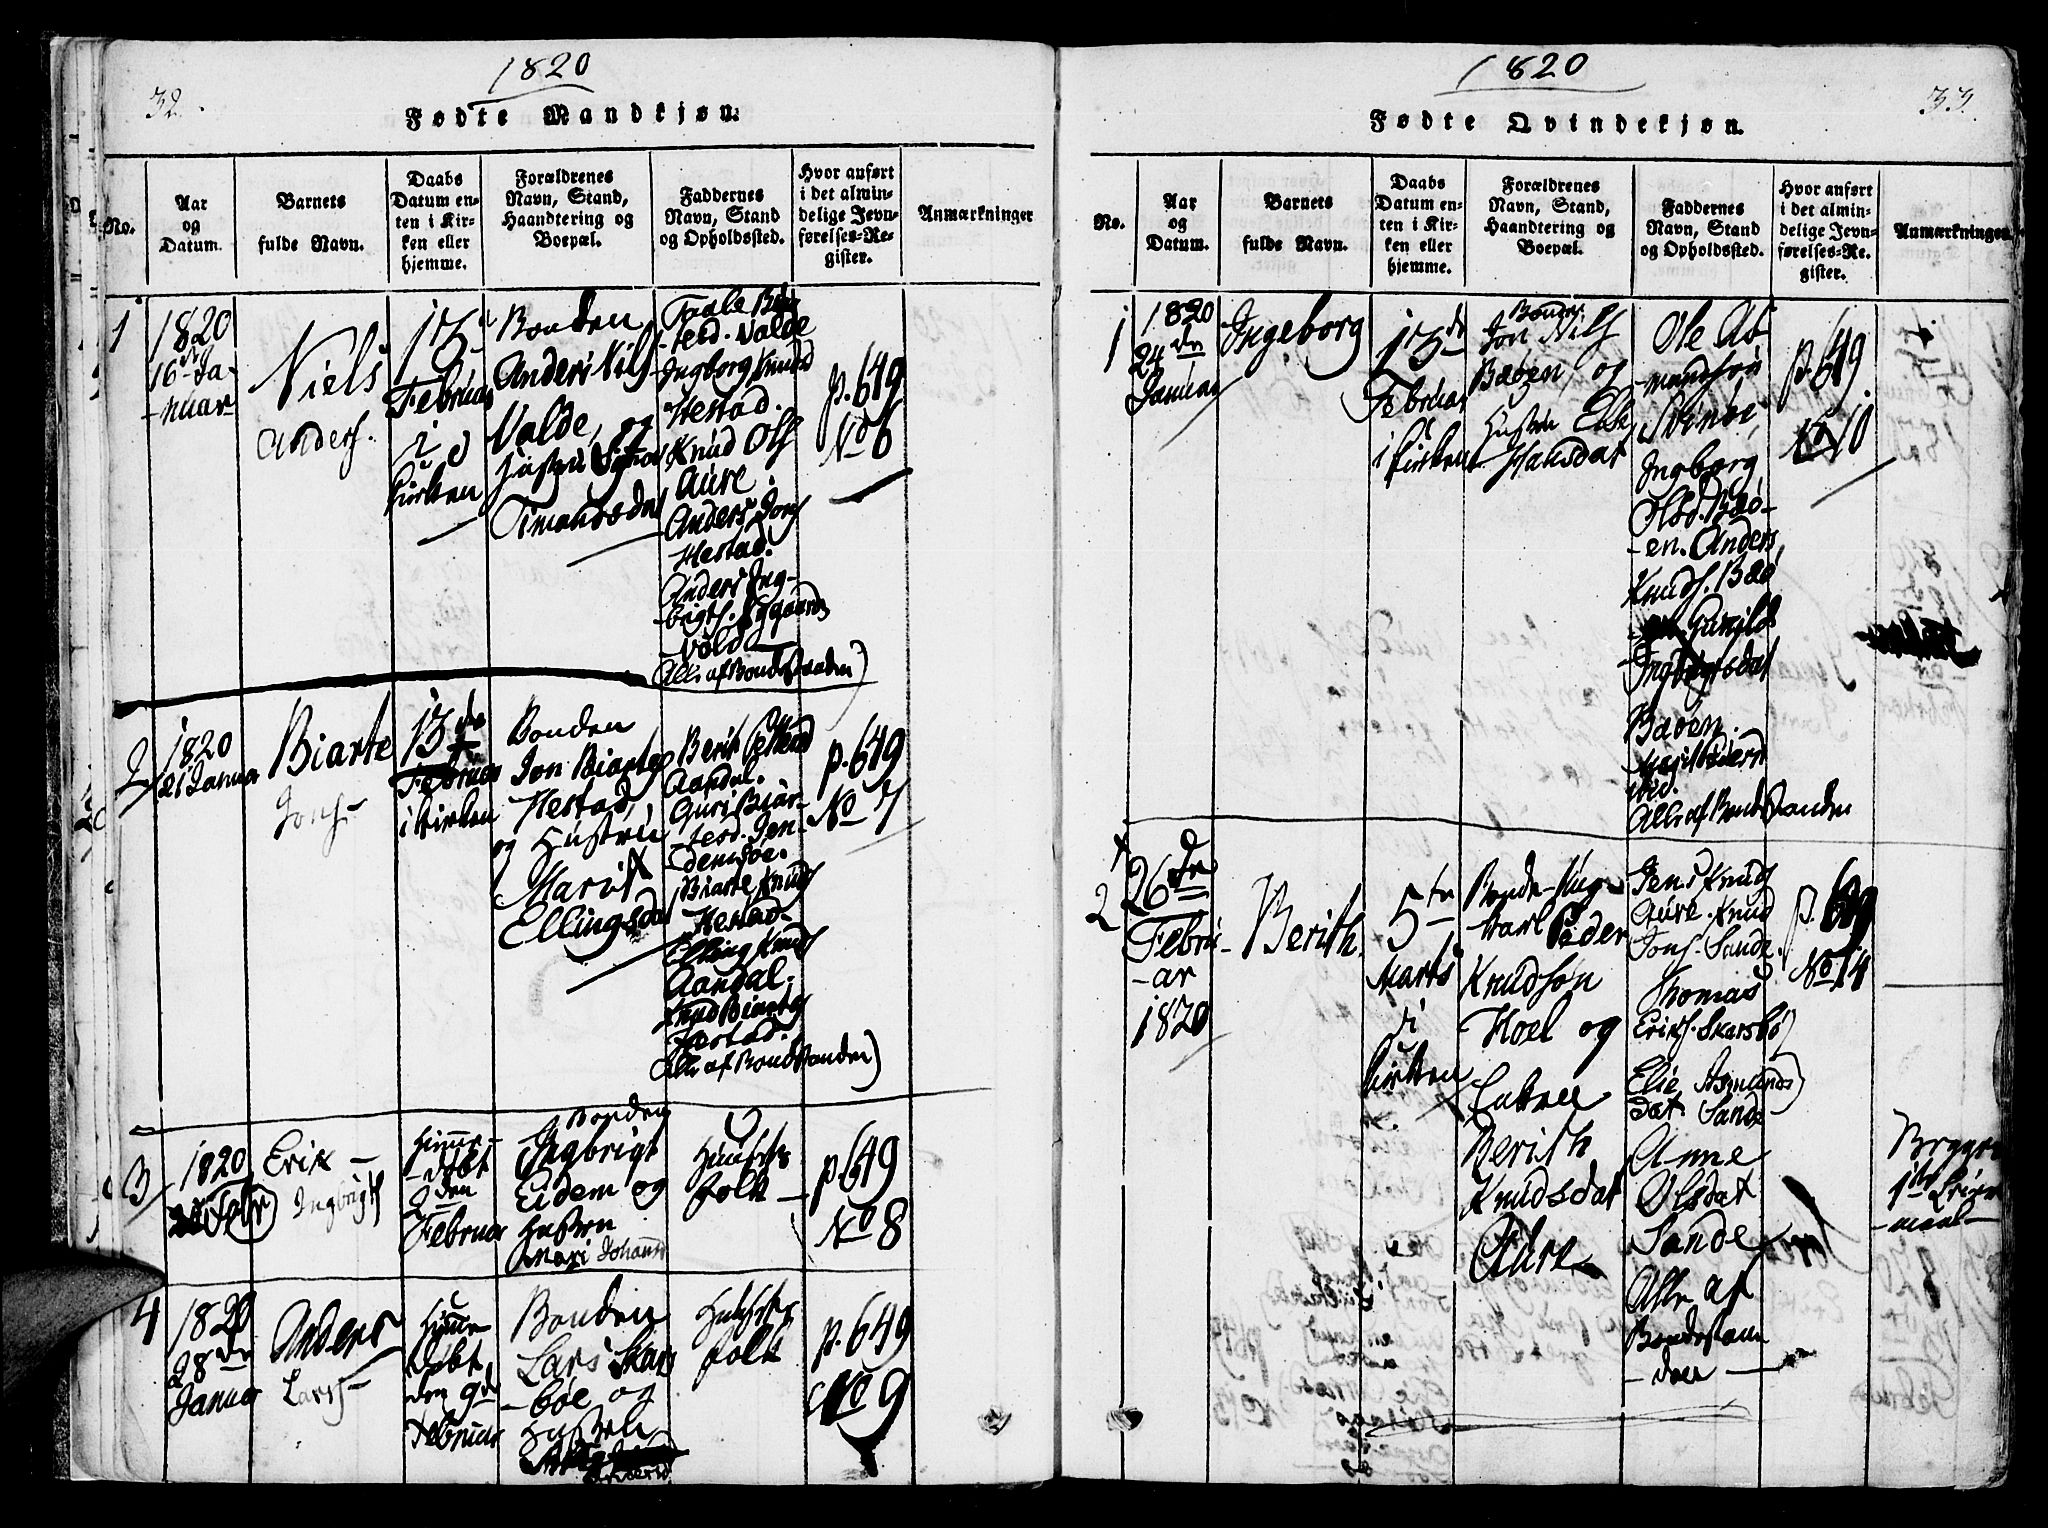 1820
32.
Fødte Mandkjøn.
No.
Aar
og
Datum.
Barnets
fulde Navn.
Daabs
Datum en-
ten i Kir-
ken eller
hjemme.
Forældrenes
Navn, Stand,
Haandtering og
Boepæl.
Faddernes
Navn, Stand
og Opholdssted.
Hvor anført
i det almin-
delige Jevn-
førelses-Re-
gister.
Anmærkninger
1
1820
16de Ja-
-nuar
Niels
Anders.
13de
Februar
i
Kirken
Bonden
Anders Nils
Valde, og
Hustru
-tesd. Valde
Ingborg Knuds
Hestad.
Knud Ols
Aure.
Anders Jons
Hestad.
Anders Ing-
-brigts.
-vold
Alle af Bondestanden)
p. 649
No 6
2
1820
21 Januar
Biarte
Jons
13de
Februar
i Kirken
Bonden
Jon Biartes
Hestad,
og Hustru
Marit
Ellingsdat
Berit
Aandal.
Guri Biar-
-tesd. Jen-
-demsøe.
Biarte Knuds
Hestad-
Elling Knuds
Aandal.
Knud Biartes
Hestad.
Alle af Bondestanden)
p. 649
No 7
3
1820
Erik
Ingbrigts
Himme-
-døbt
2den
Februar
Bonden
Ingbrigt
Eidem og
Hustru
Mari Johans
folk
p. 649
No 8
4
1820
28de
Januar
Anders
Lars
Hjemme
døbt
den 9de
Februar
Bonden
Lars Skars
-bøe og
Hustru
folk
p. 649
No 9
1820
33.
Fødte Qvindekjøn.
No.
Aar
og
Datum.
Barnets
fulde Navn.
Daabs
Datum en-
ten i Kir-
ken eller
hjemme.
Forældrenes
Navn, Stand,
Haandtering og
Boepæl.
Faddernes
Navn, Stand
og Opholdssted.
Hvor anført
i det almin-
delige Jevn-
førelses-Re-
gister.
Anmærkninger
1
1820
24de
Januar
Ingeborg
13de
Februar
i Kirken
Bonden
Jon Nils
Baøen og
Hustru Else
Hansdat
Ole As-
-mundsøn
Svinøe,
Ingborg
Olsd. Baø-
-en. Anders
Knuds. Baø
-en. Gunild
Ingbrigtsdat
Baøen.
ibid.
Alle af Bondestanden
p. 649.
No 10
2
26de
Febru-
-ar
1820
Berith
5te
Marts
i
Kirken
Bonde-Ung-
-karl Peder
Knudsøn
Hoel og
Enken
Berith
Knudsdat
Aure
Jens Knuds
Aure. Knud
Jons. Sande.
Thomas
Eriks. Skarsbø
Elie Asmunds
dat Sande
Anne
Olsdat
Sande
Alle af
Bondestan
-den
p. 649
No 14
1ste Leier
-maal-